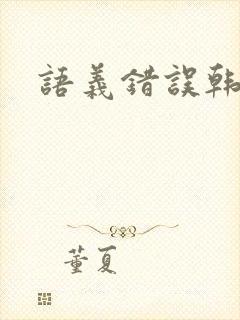 語義錯誤韩
董夏